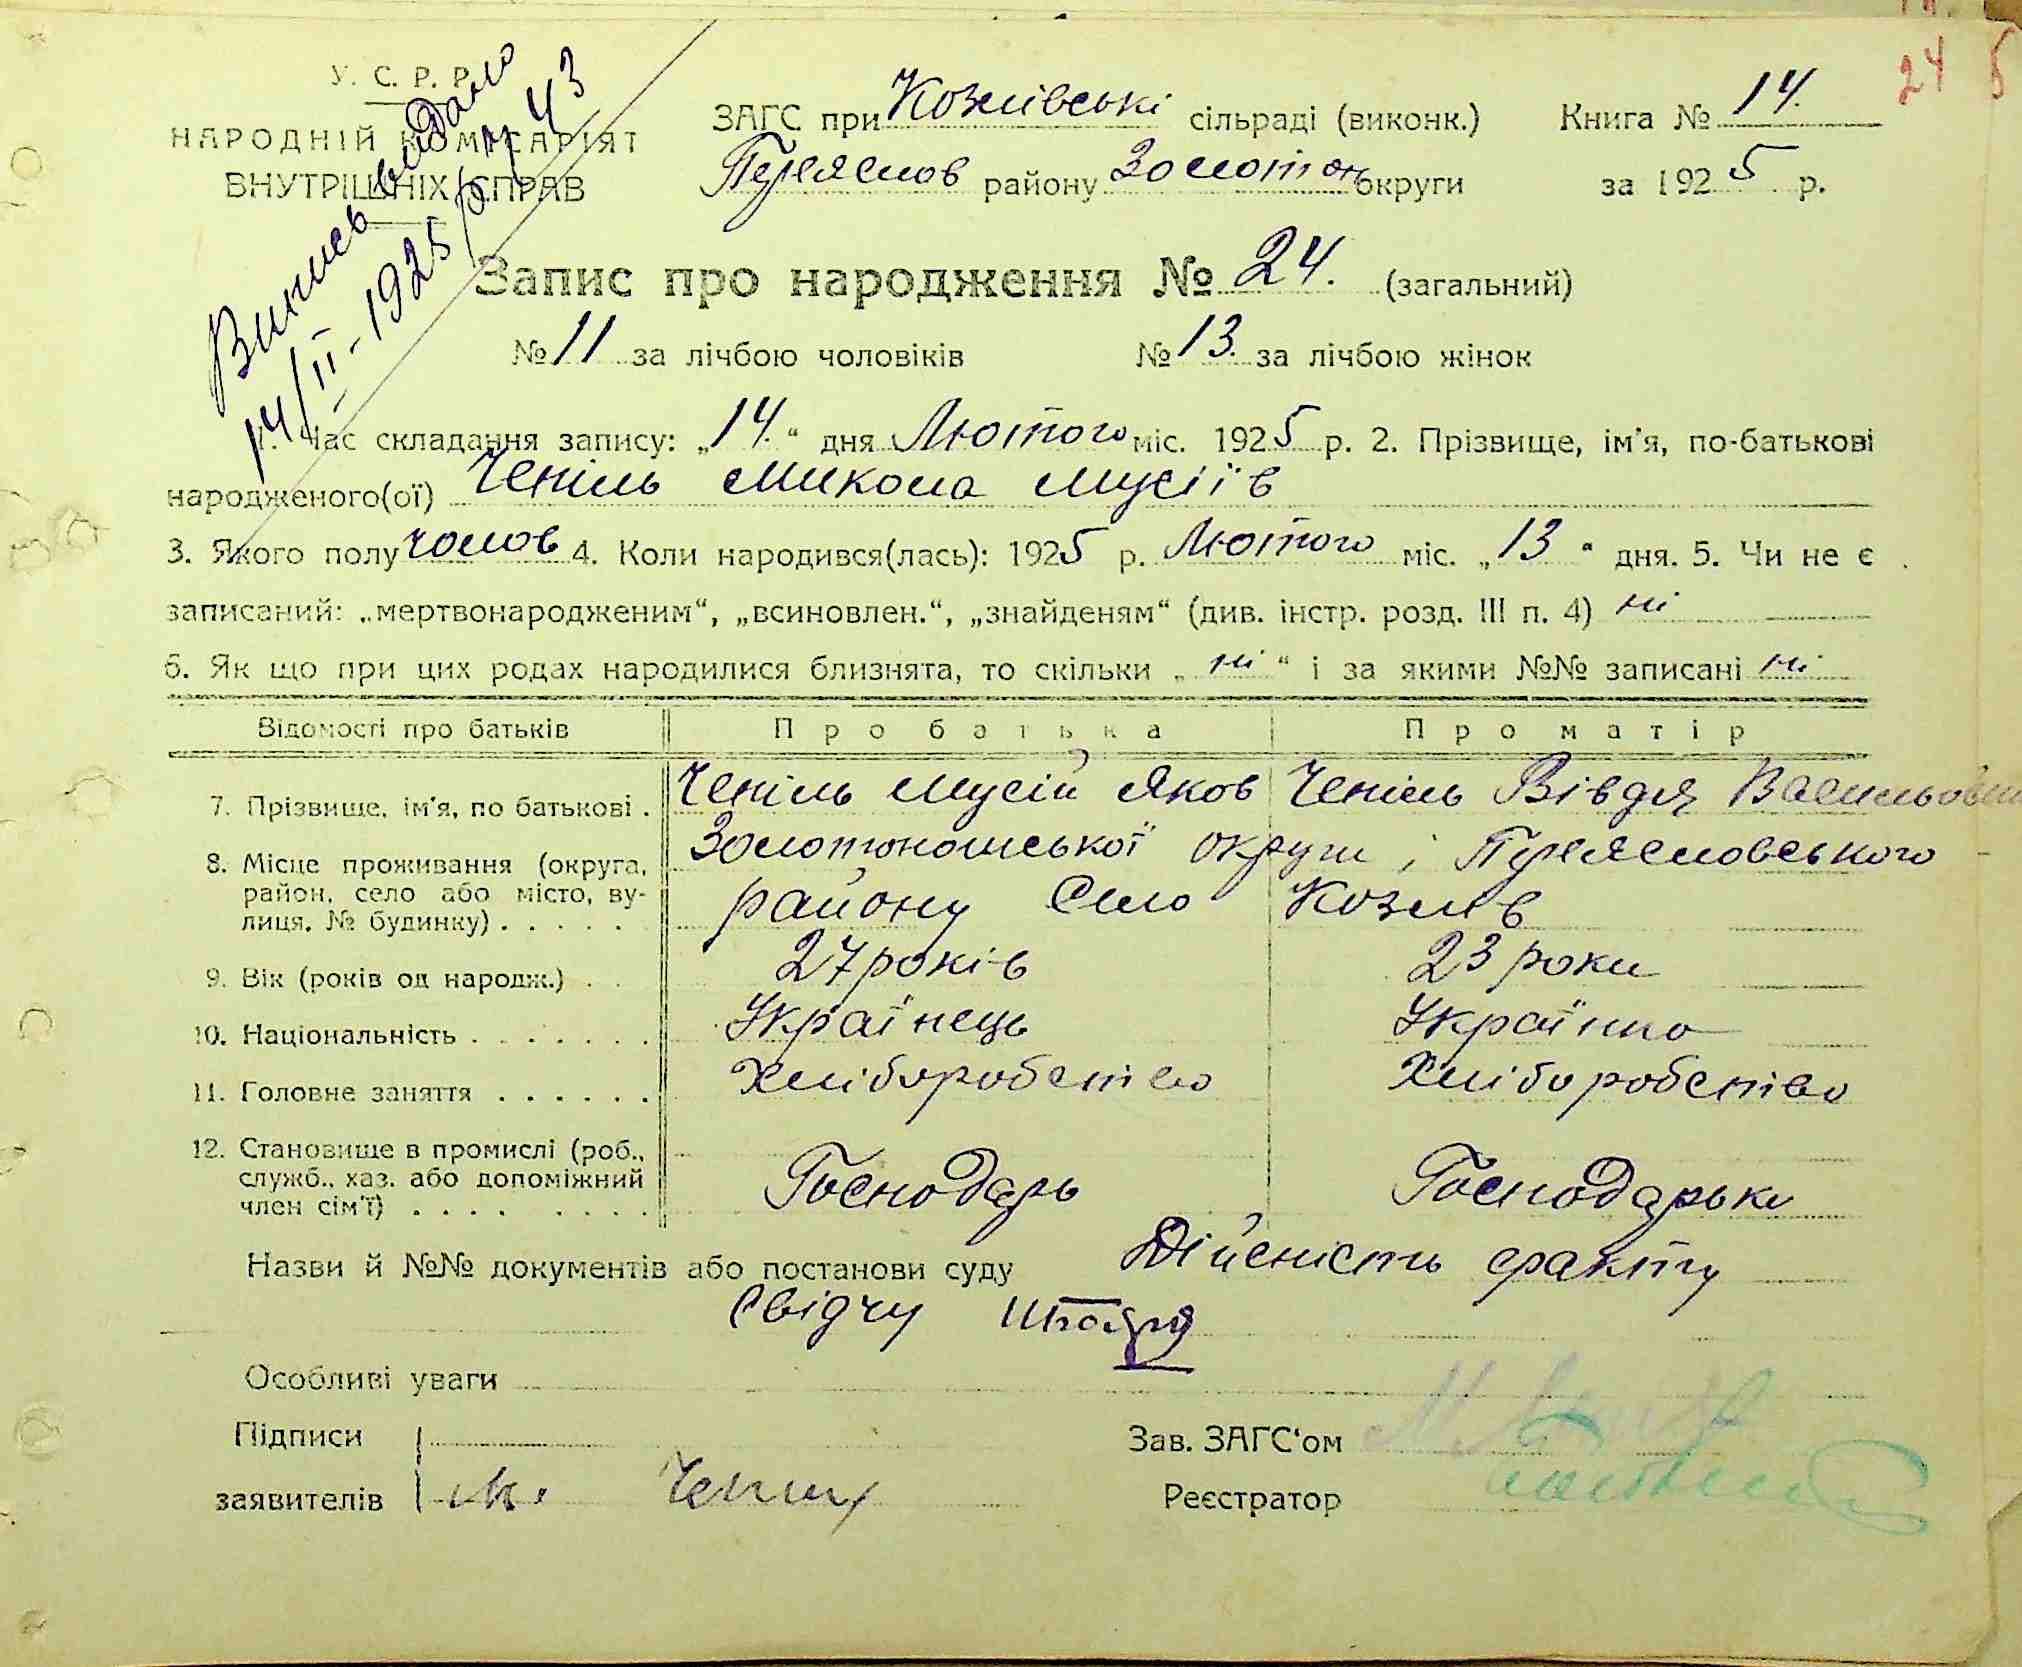 24
У. С. Р. Р.
НАРОДНІЙ КОМІСАРІЯТ
ВНУТРІШНІХ СПРАВ
Випись видано
14/II-1925 р. № 43
ЗАГС при Козлівські сільраді (виконк.) Книга № 14.
Переяслов району Золотон округи за 1925 р.
Запис про народження № 24. (загальний)
№ 11 за лічбою чоловіків № 13. за лічбою жінок
1. Час складання запису: „14.“ дня Лютого міс. 1925 р. 2. Прізвище, ім'я, по-батькові
народженого(ої) Чепіль Микола Мусіїв
3. Якого полу чолов 4. Коли народився(лась): 1925 р. Лютого міс. „13“ дня. 5. Чи не є
записаний: „мертвонародженим“, „всиновлен.“, „знайденям“ (див. інстр. розд. III п. 4) ні
6. Як що при цих родах народилися близнята, то скільки „ні“ і за якими №№ записані ні
Відомості про батьків Про батька Про матір
7. Прізвище, ім'я, по батькові . Чепіль Мусій Яков Чепіль Вівдя Васильовна
8. Місце проживання (округа, район, село або місто, вулиця, № будинку) . . . . . Золотоношської округи і Переясловського
району Село Козлів
9. Вік (років од народж.) . . 27 років 23 роки
10. Національність . . . . . . . Українець Українка
11. Головне заняття . . . . . . Хліборобство Хліборобство
12. Становище в промислі (роб., служб., хаз. або допоміжний член сім'ї) . . . . . . . . Господарь Господарька
Назви й №№ документів або постанови суду Дійсність факту
свідчу
Особливі уваги
Підписи
заявителів М. Чепіль
Зав. ЗАГС'ом
Реєстратор